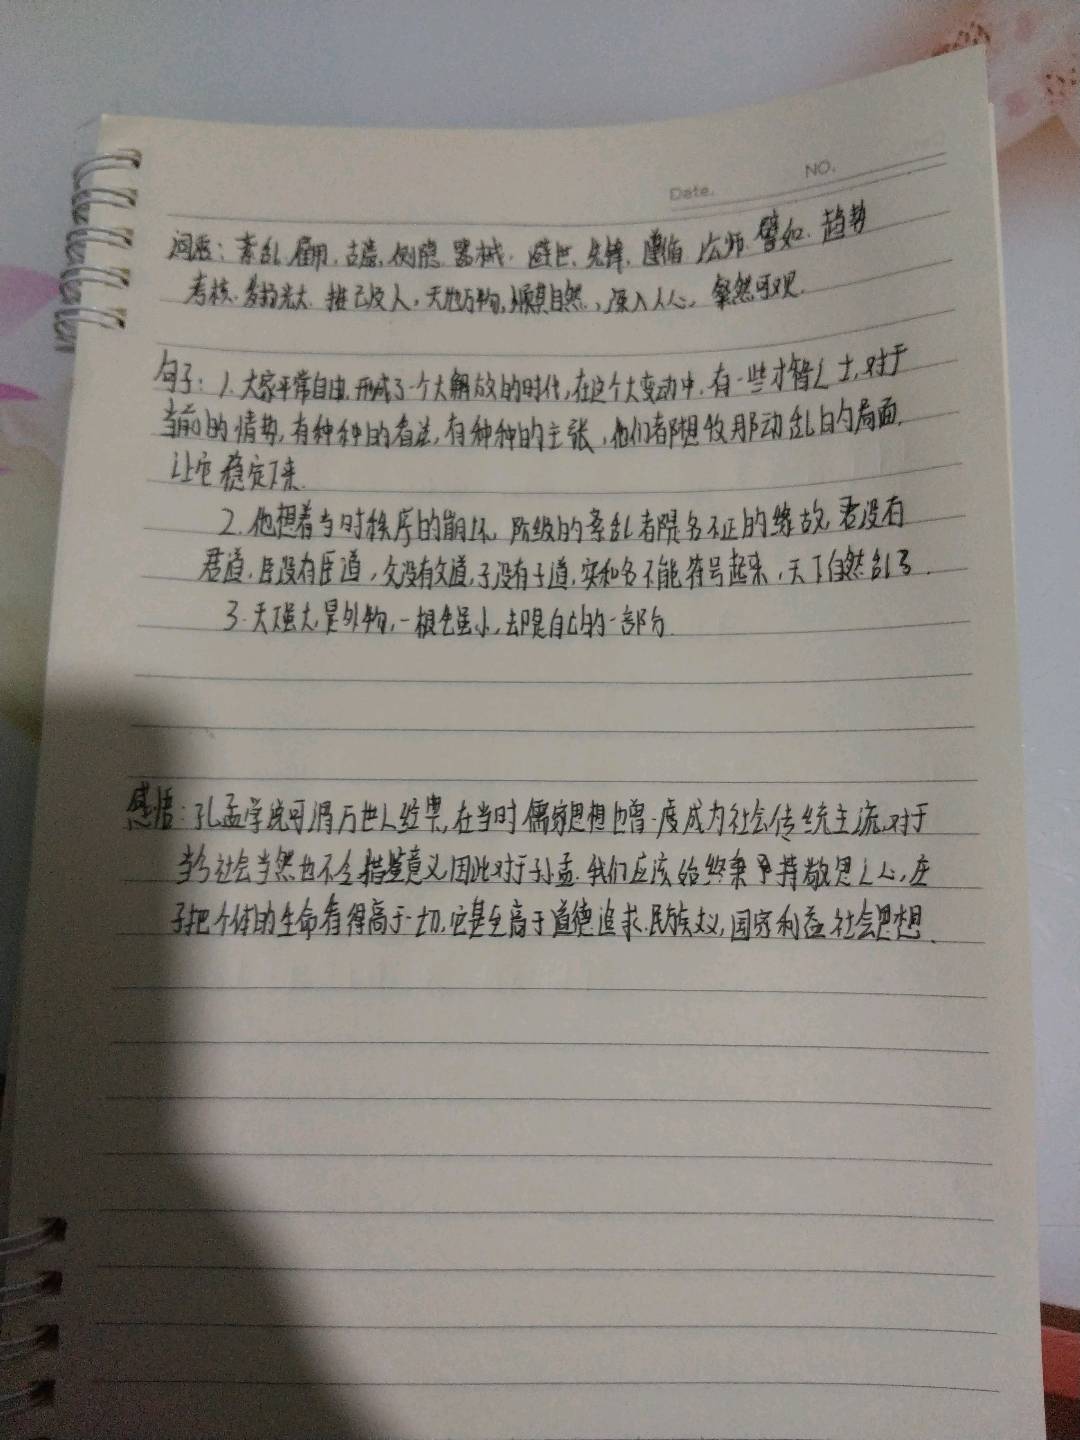 Date. NO.
词语：紊乱.雇用.古意.恻隐.器械.避世.先锋.遵循.宗师.譬如.趋势
考核.发扬光大.推己及人，天地万物，顺其自然，深入人心，粲然可观.
句子：1.大家平常自由.形成了一个大解放的时代，在这个大变动中.有一些才智人士，对于
当前的情势，有种种的看法，有种种的主张，他们都想收那动乱的局面.
让它稳定下来.
2.他想着当时秩序的崩坏，阶级的紊乱都是名不正的缘故，君没有
君道，臣没有臣道，父没有父道，子没有子道，实和名不能符号起来，天下自然乱了.
3.天下虽大，是外物，一根毛虽小，却是自己的一部分.
感悟：孔孟学说可谓万世人经典，在当时儒家思想也曾一度成为社会传统主流，对于
当今社会当然也不乏借鉴意义，因此对于孔孟.我们应该始终秉 持敬畏人心，庄
子把个体的生命看得高于一切，它甚至高于道德追求.民族大义，国家利益.社会思想.